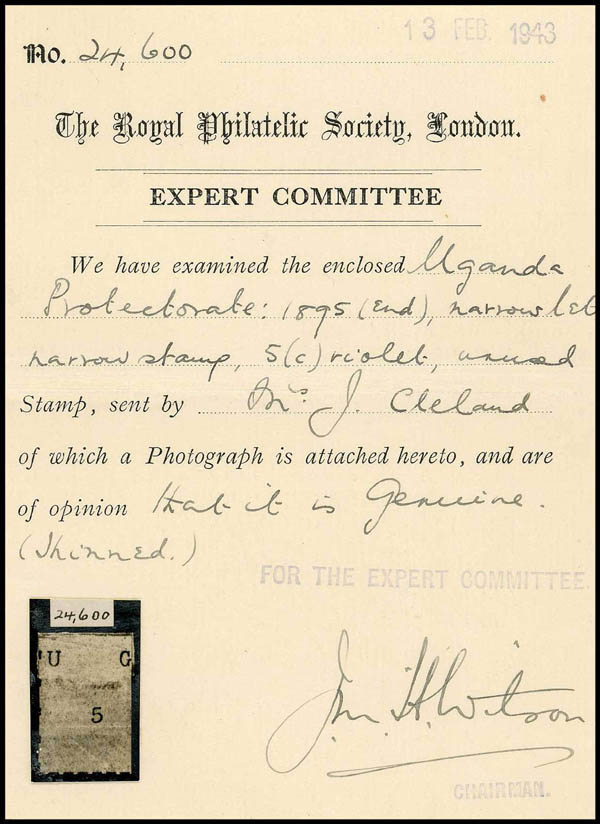 No. 24,600
13 FEB. 1943
The Royal Philatelic Society, London.
EXPERT COMMITTEE
We have examined the enclosed Uganda
Protectorate: 1895 (End), narrow let
narrow stamp, 5(c) violet, unused
Stamp, sent by Mrs. J. Cleland
of which a Photograph is attached hereto, and are
of opinion that it is Genuine.
(Thinned.)
FOR THE EXPERT COMMITTEE
24,600
U G
5
J.M.H. Wilson
CHAIRMAN.